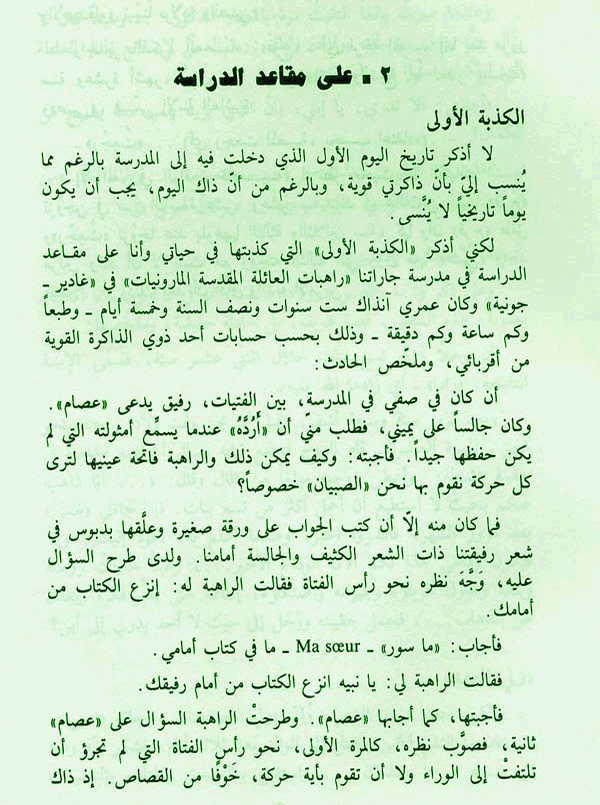 ٢ ـ على مقاعد الدراسة
الكذبة الأولى
لا أذكر تاريخ اليوم الأول الذي دخلت فيه إلى المدرسة بالرغم مما
يُنسب إليّ بأنّ ذاكرتي قوية، وبالرغم من أنّ ذاك اليوم، يجب أن يكون
يوماً تاريخياً لا يُنْسى.
لكني أذكر «الكذبة الأولى» التي كذبتها في حياتي وأنا على مقاعد
الدراسة في مدرسة جاراتنا «راهبات العائلة المقدسة المارونيات» في «غادير ـ
جونية» وكان عمري آنذاك ست سنوات ونصف السنة وخمسة أيام ـ وطبعاً
وكم ساعة وكم دقيقة ـ وذلك بحسب حسابات أحد ذوي الذاكرة القوية
من أقربائي، وملخّص الحادث:
أن كان في صفي في المدرسة، بين الفتيات، رفيق يدعى «عصام».
وكان جالساً على يميني، فطلب منّي أن «أَرُدَّهُ» عندما يسمِّع أمثولته التي لم
يكن حفظها جيداً. فأجبته: وكيف يمكن ذلك والراهبة فاتحة عينيها لترى
كل حركة نقوم بها نحن «الصبيان» خصوصاً؟
فما كان منه إلّا أن كتب الجواب على ورقة صغيرة وعلَّقها بدبوس في
شعر رفيقتنا ذات الشعر الكثيف والجالسة أمامنا. ولدى طرح السؤال
عليه، وَجَّهَ نظره نحو رأس الفتاة فقالت الراهبة له: إنزع الكتاب من
أمامك.
فأجاب: «ما سور» ـ Ma sœur ـ ما في كتاب أمامي.
فقالت الراهبة لي: يا نبيه انزع الكتاب من أمام رفيقك.
فأجبتها، كما أجابها «عصام». وطرحتْ الراهبة السؤال على «عصام»
ثانية، فصوَّب نظره، كالمرة الأولى، نحو رأس الفتاة التي لم تجرؤ أن
تلتفتْ إلى الوراء ولا أن تقوم بأية حركة، خَوْفاً من القصاص. إذ ذاك